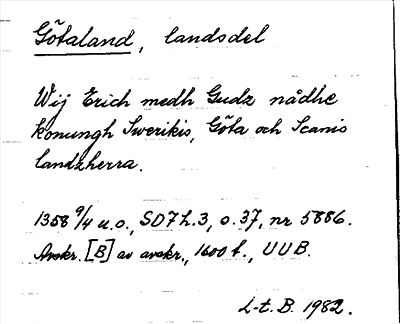 Götaland, landsdel
Wij Erich medh Gudz nådhe
konungh Swerikis, Göta och Scanis
landzherra.
1358 9/4 u.o., SD 7 h.3, s. 37, nr 5886.
Avskr. [B] av avskr., 1600 t., UUB.
L-t. B. 1982.